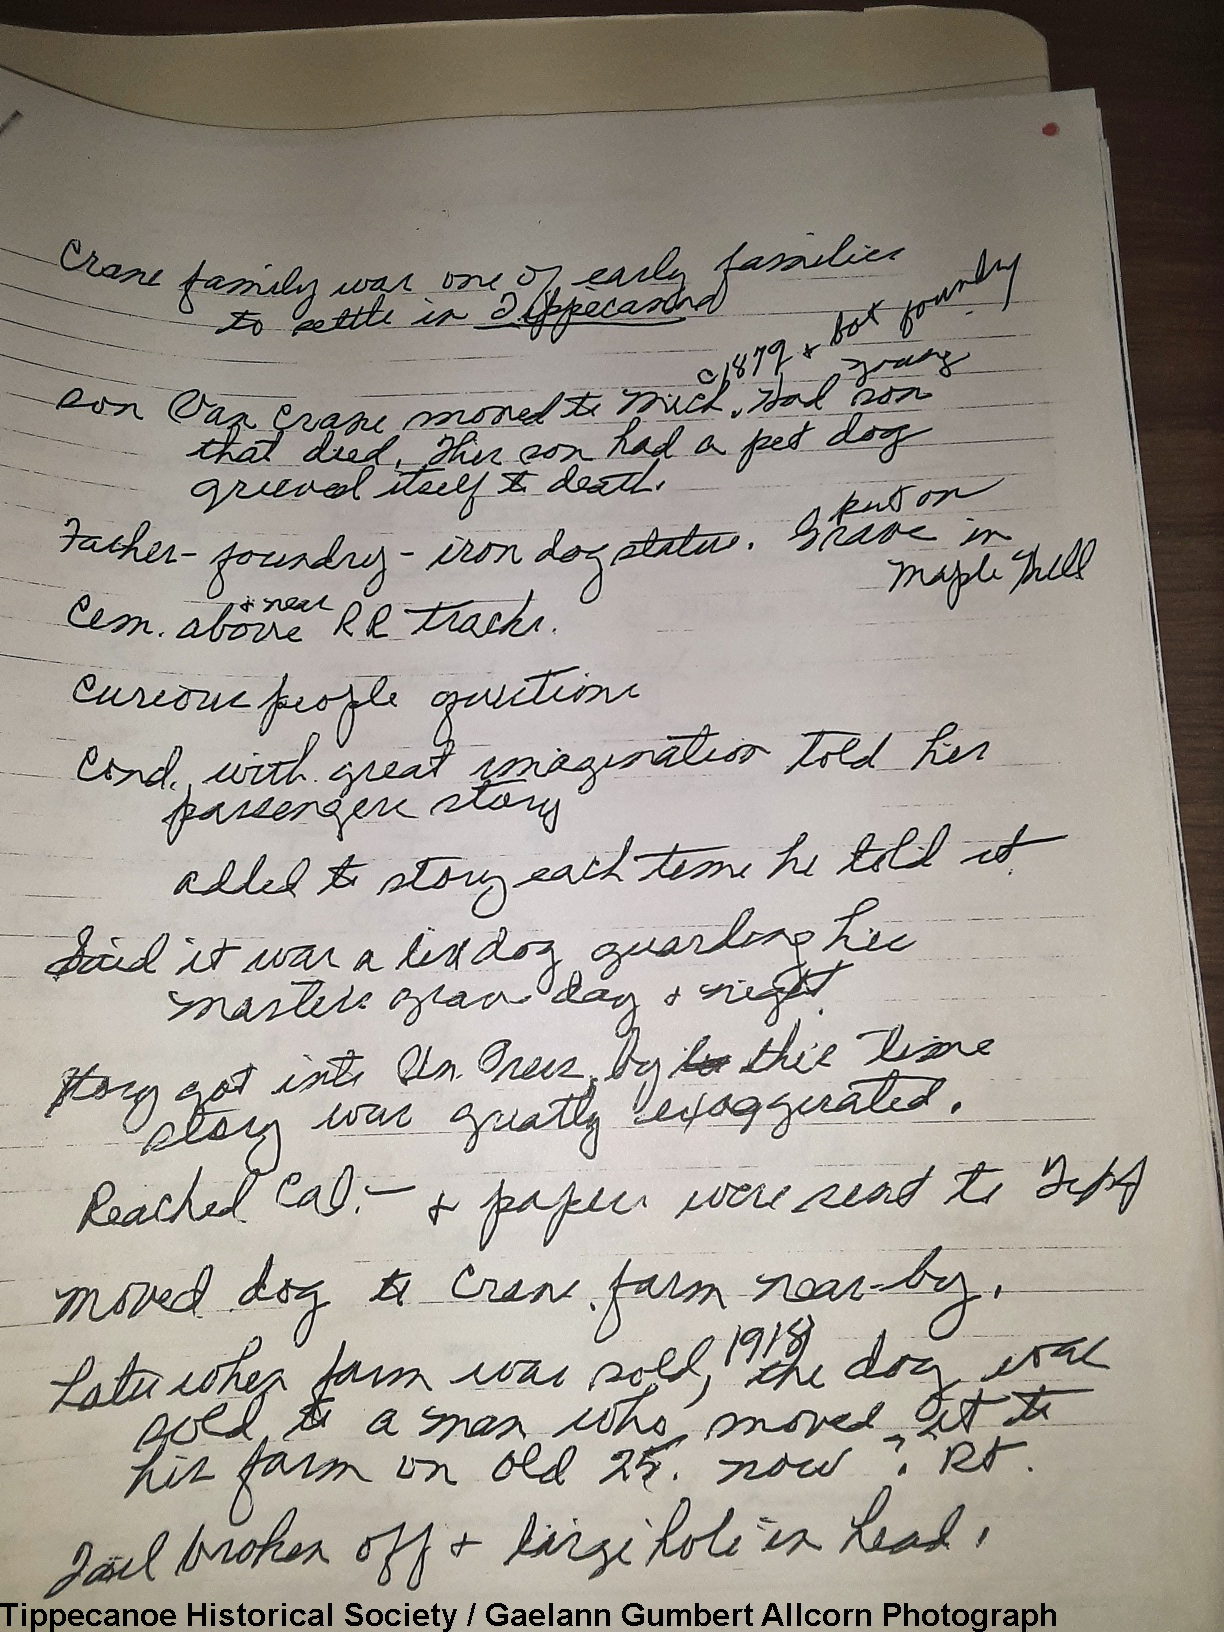 Crane family was one of early families
to settle in Tippecanoe
c1879 + bot foundry
son Van Crane moved to Mich. Had young son
that died. This son had a pet dog
grieved itself to death.
Father - foundry - iron dog statue. put on Grave in
Maple Hill
Cem. above + near RR tracks.
Curious people questions
Cond. with great imagination told his
passengers story
added to story each time he told it.
Said it was a live dog guarding his
masters grave day + night.
Story got into Un. Press by this time
story was greatly exaggerated.
Reached Cal. - + papers were sent to
moved dog to Crane farm near-by.
Later when farm was sold, 1918 the dog was
sold to a man who moved it to
his farm on old 25. now ? Rt.
Tail broken off + large hole in head.
Tippecanoe Historical Society / Gaelann Gumbert Allcorn Photograph